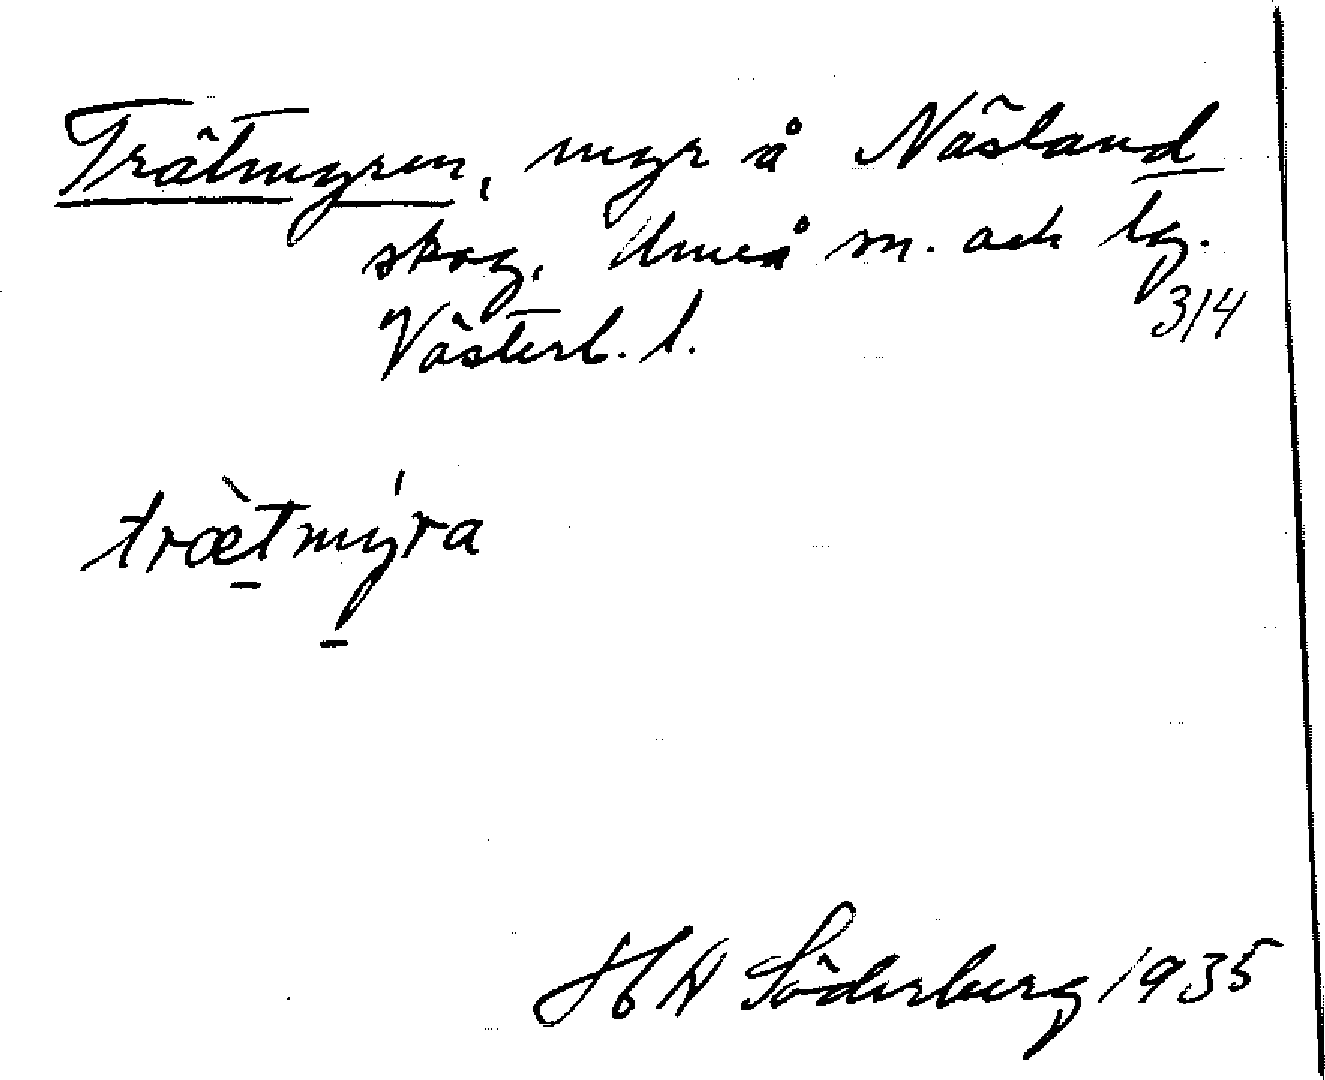 Trätmyren, myr å Näsland
skog, Umeå sn. och lg.
314
Västerb. l.
trætmy̍ra
H W Söderberg 1935